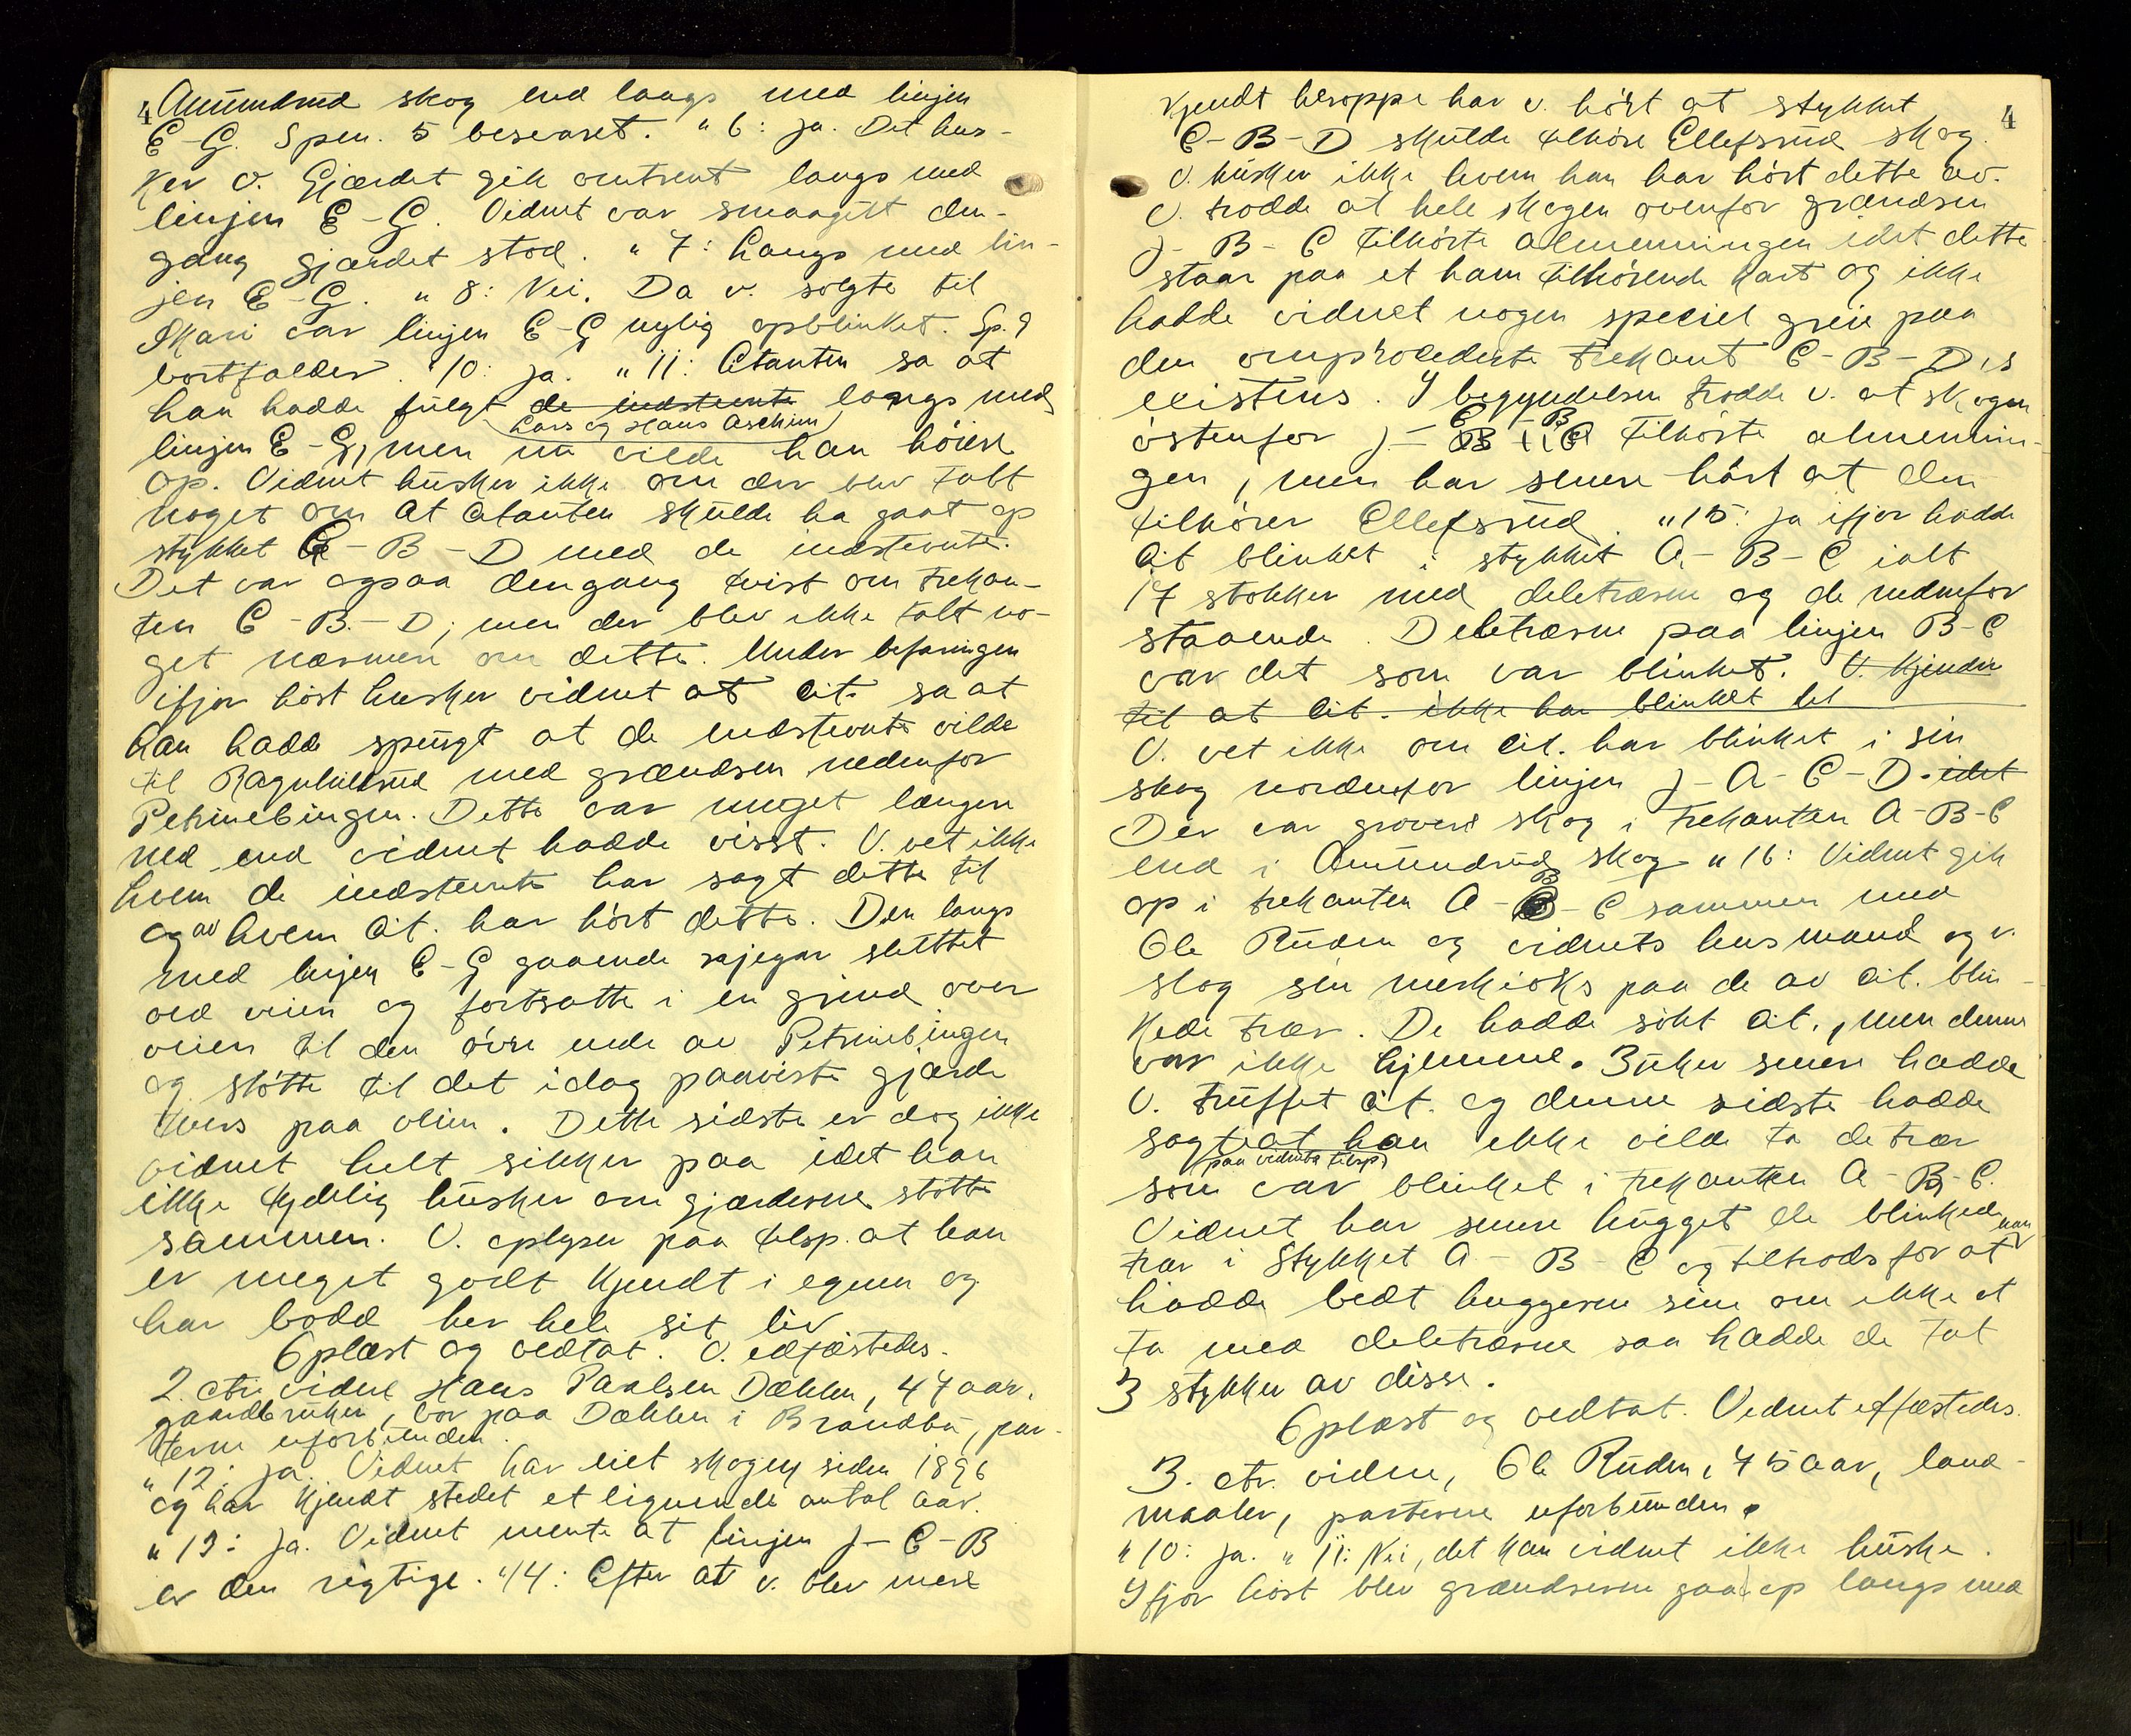 4
Amundrud skog end langs med linjen
E-G. Spm. 5 besvaret. " 6: Ja. Det hus-
ker v. Gjærdet gik omtrent langs med
linjen E-G. Vidnet var smaagut den-
gang gjærdet stod. " 7: Langs med lin-
jen E-G. " 8: Nei. Da v. solgte til
Skari var linjen E-G nylig opblinket. Sp. 9
bortfalder. "10: Ja. " 11: Citanten sa at
han hadde fulgt de indstevnte langs med
Lars og Hans Aschim
linjen E-G, men nu vilde han höiere
op. Vidnet husker ikke om der blev talt
noget om at citanten skulde ha gaat op
stykket C-B-D med de indstevnte.
Det var ogsaa dengang tvist om trekan-
ten C-B-D; men der blev ikke talt no-
get nærmere om dette. Under befaringen
ifjor höst husker vidnet at cit. sa at
han hadde spurgt at de indstevnte vilde
til Ragnhildrud med grændsen nedenfor
Petrinebingen. Dette var meget længere
ned end vidnet hadde visst. V. vet ikke
hvem de indstevnte har sagt dette til
og av hvem cit. har hört dette. Den langs
med linjen E-G gaaende skjegar sluttet
ved veien og fortsatte i en grind over
veien til den övre ende av Petrinebingen
og stötte til det idag paaviste gjærde
tvers paa veien. Dette sidste er dog ikke
vidnet helt sikker paa idet han
ikke tydelig husker om gjærderne stötte
sammen. V. oplyser paa tilsp. at han
er meget godt kjendt i egnen og
har bodd her hele sit liv
Oplæst og vedtat. V. edfæstedes.
2. ctr. vidne Hans Paulsen Dæhlen, 47 aar,
gaardbruker, bor paa Dæhlen i Brandbu, par-
terne uforbunden.
" 12: Ja. Vidnet har eiet skogen siden 1896
og har kjendt stedet et lignende antal aar.
" 13: Ja. Vidnet mente at linjen J-C-B
er den rigtige. "14: Efter at v. blev mere
4
kjendt heroppe har v. hört at stykket
C-B-D skulde tilhöre Ellefsrud skog.
V. husker ikke hvem han har hört dette av.
V. trodde at hele skogen ovenfor grændsen
J-B-C tilhörte almenningen idet dette
staar paa et ham tilhörende kart og ikke
hadde vidnet nogen speciel greie paa
den omprocederte trekant C-B-D's
existens. I begyndelsen trodde v. at skogen
C B
östenfor J- tilhörte almennin-
gen, men har senere hört at den
tilhörer Ellefsrud. " 15: Ja ifjor hadde
cit blinket i stykket A-B-C ialt
17 stokker med deletrærne og de nedenfor
staaende. Deletrærne paa linjen B-C
var det som var blinket. V. kjender
til at cit. ikke har blinket det
V. vet ikke om cit. har blinket i sin
skog nordenfor linjen J-A-C-D. idet
Der var grovere skog i trekanten A-B-C
end i Amundrud skog " 16: Vidnet gik
op i trekanten A-B-C sammen med
Ole Ruden og vidnets husmand og v.
slog sin merkiöks paa de av cit. blin-
kede trær. De hadde sökt cit., men denne
var ikke hjemme. 3 uker senere hadde
V. truffet cit. og denne sidste hadde
sagt at han ikke vilde ta de trær
paa vidnets tilsp.
som var blinket i trekanten A-B-C.
Vidnet har senere hugget de blinkede
trær i stykket A-B-C og tiltrods for at han
hadde bedt huggerne sine om ikke at
ta med deletrærne saa hadde de tat
3 stykker av disse.
Oplæst og vedtat. Vidnet edfæstedes.
3. ctr. vidne, Ole Ruden, 45 aar, land-
maaler, parterne uforbunden.
" 10: Ja. " 11: Nei, det kan vidnet ikke huske.
Ifjor höst blev grændserne gaat op langs med